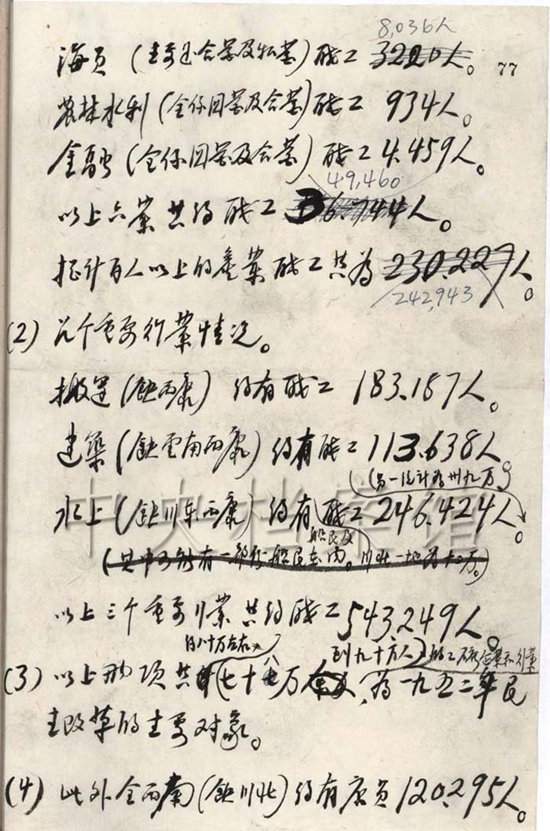 8,036人
海员（主要还合营及私营）职工3220人。 77
农林水利（全系国营及合营）职工934人。
金融（全系国营及合营）职工4.459人。
49,460
以上六业共约职工36.744人。
总计百人以上的产业职工共为230.227人。
242,943
(2) 几个重要行业情况。
搬运（缺西康）约有职工183.187人。
建築（缺云南西康）约有职工113.638人。
（另一估计为卅九万）
水上（缺川东西康）约有职工246.424人。
船民及
（其中可能有一部份船民在内。川北一地为十二万。）
以上三个重要行业共约职工543.249人。
约八十万左右 到九十六人）的工厂企业和行业
(3) 以上两项共七十七万余人，为一九五二年民
主改革的主要对象。
(4) 此外全西南（缺川北）约有店员120.295人。
中央档案馆